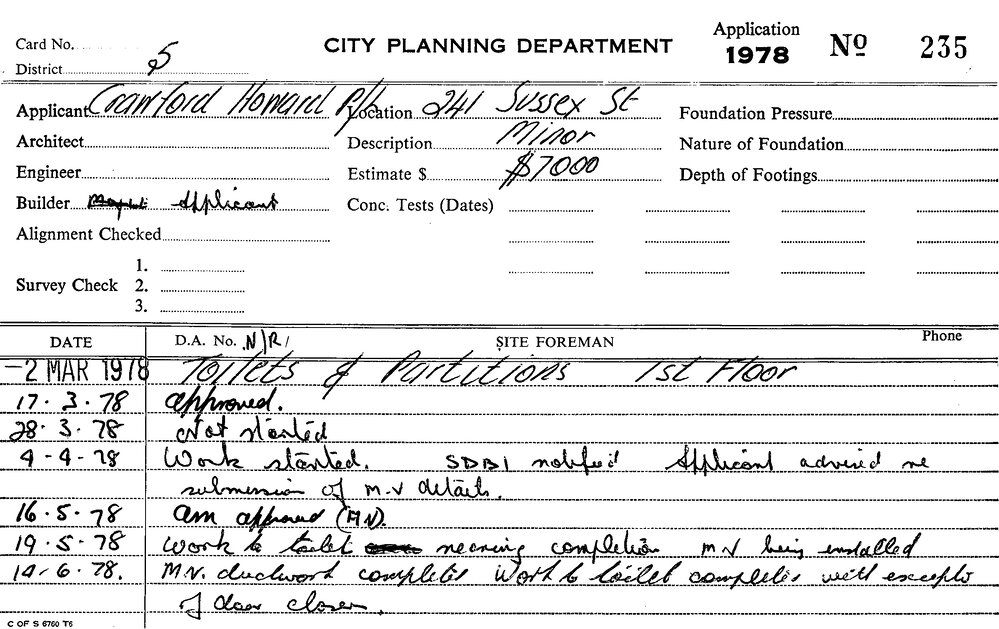 Card No. CITY PLANNING DEPARTMENT Application 1978 Nº 235
District 5
Applicant Crawford Howard P/L Location 241 Sussex St Foundation Pressure
Architect Description Minor Nature of Foundation
Engineer Estimate $ $7000 Depth of Footings
Builder Applicant Conc. Tests (Dates)
Alignment Checked
1.
Survey Check 2.
3.
DATE D.A. No. N/R/ SITE FOREMAN Phone
-2 MAR 1978 Toilets & Partitions 1st Floor
17.3.78 approved.
28.3.78 Not started
4-4-78 Work started. SDBI notified Applicant advised re
submission of M.V details.
16.5.78 am approved
19.5.78 Work to toilet nearing completion MV being installed
14-6.78. M.V. ductwork completed Work to toilet completed with
of door closer.
C OF S 6760 T6